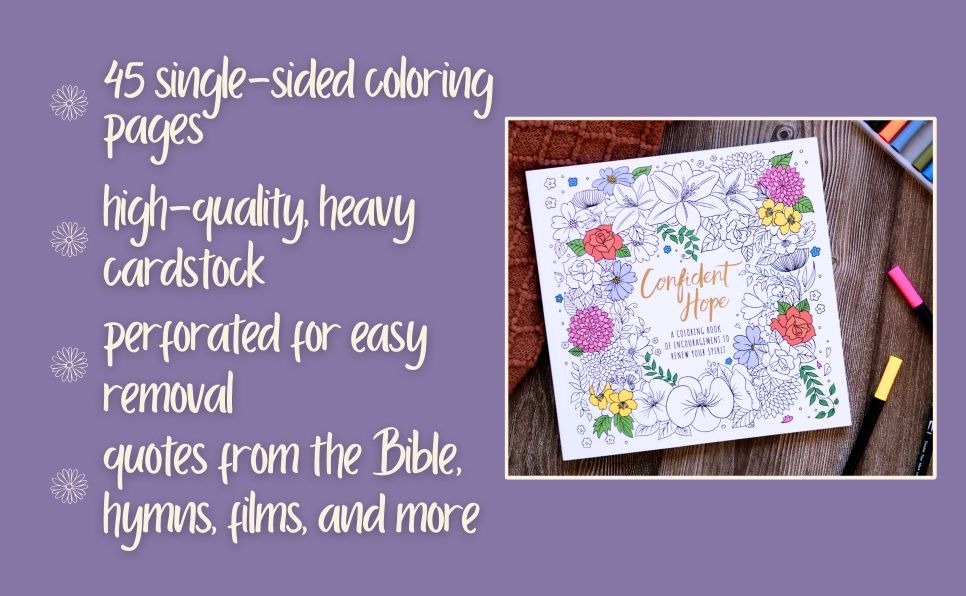 45 single-sided coloring
pages
high-quality, heavy
cardstock
perforated for easy
removal
quotes from the Bible,
hymns, films, and more
Confident
Hope
A COLORING BOOK
OF ENCOURAGEMENT TO
RENEW YOUR SPIRIT